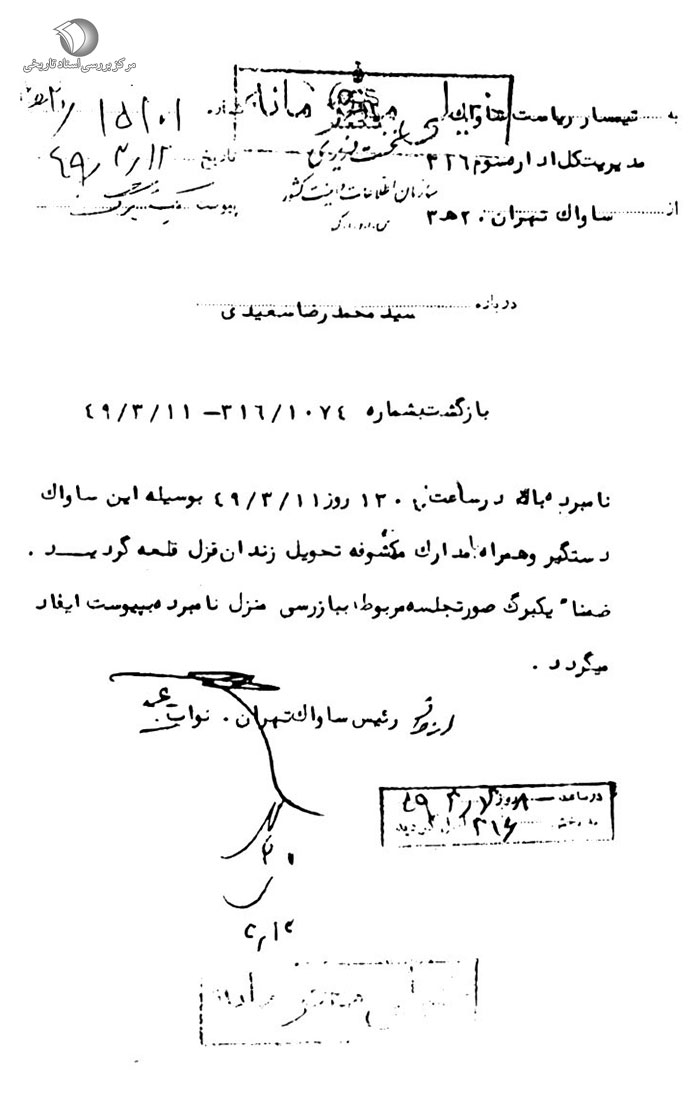 مرکز بررسی اسناد تاریخی
خیلی محرمانه
به تیمسار ریاست ساواک
شماره ۱۵۱۰۱/
نخست وزیری
مدیریت کل اداره سوم ۳۲۶
تاریخ ۴۹/۳/۱۲
سازمان اطلاعات و امنیت کشور
س.ا.و.ا.ک
از ساواک تهران . ۲۰هـ۳
پیوست یک برگ
درباره سید محمد رضا سعیدی
بازگشت بشماره ۳۱۶/۱۰۷۴ – ۴۹/۳/۱۱
نامبرده بالا در ساعت ۱۳۰ روز ۴۹/۳/۱۱ بوسیله این ساواک
دستگیر و همراه مدارک مکشوفه تحویل زندان قزل قلعه گردید .
ضمنا" یکبرگ صورتجلسه مربوط ببازرسی منزل نامبرده بپیوست ایفاد
میگردد .
رئیس ساواک تهران . نواب
در ساعت ۸ روز ۴۹
به بخش ۳۱۶ گردید